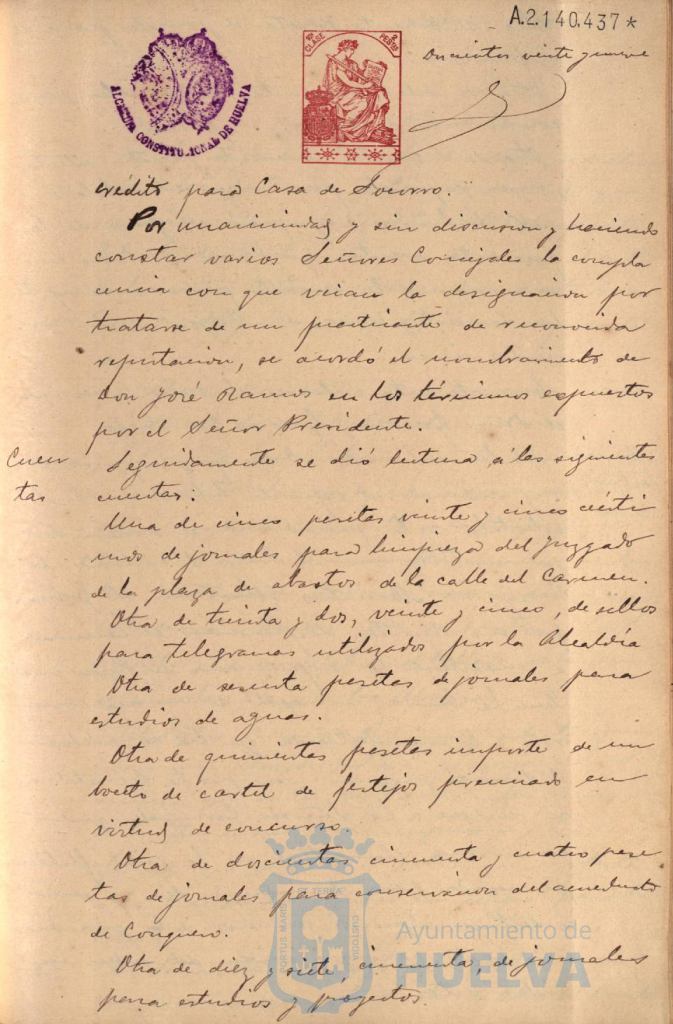 A.2.140.437*
Doscientos veinte y nueve
ALCALDIA CONSTITUCIONAL DE HUELVA
CLASE
PESETAS
crédito para Casa de Socorro.
Por unanimidad y sin discusion y haciendo
constar varios Señores Concejales la compla
cencia con que veian la designacion por
tratarse de un practicante de reconocida
reputacion, se acordó el nombramiento de
Don José Ramos en los términos expuestos
por el Señor Presidente.
Cuen
tas
Seguidamente se dió lectura á las siguientes
cuentas:
Una de cinco pesetas veinte y cinco cénti
mos de jornales para limpieza del Juzgado
de la plaza de abastos de la calle del Carmen.
Otra de treinta y dos, veinte y cinco, de sellos
para telegramas utilizados por la Alcaldía
Otra de sesenta pesetas de jornales para
estudios de aguas.
Otra de quinientas pesetas importe de un
boceto de cartel de festejos premiado en
virtud de concurso.
Otra de doscientas cincuenta y cuatro pese
tas de jornales para conservacion del acueducto
de Conquero.
Otra de diez y siete, cincuenta, de jornales
para estudios y proyectos.
Ayuntamiento de
HUELVA